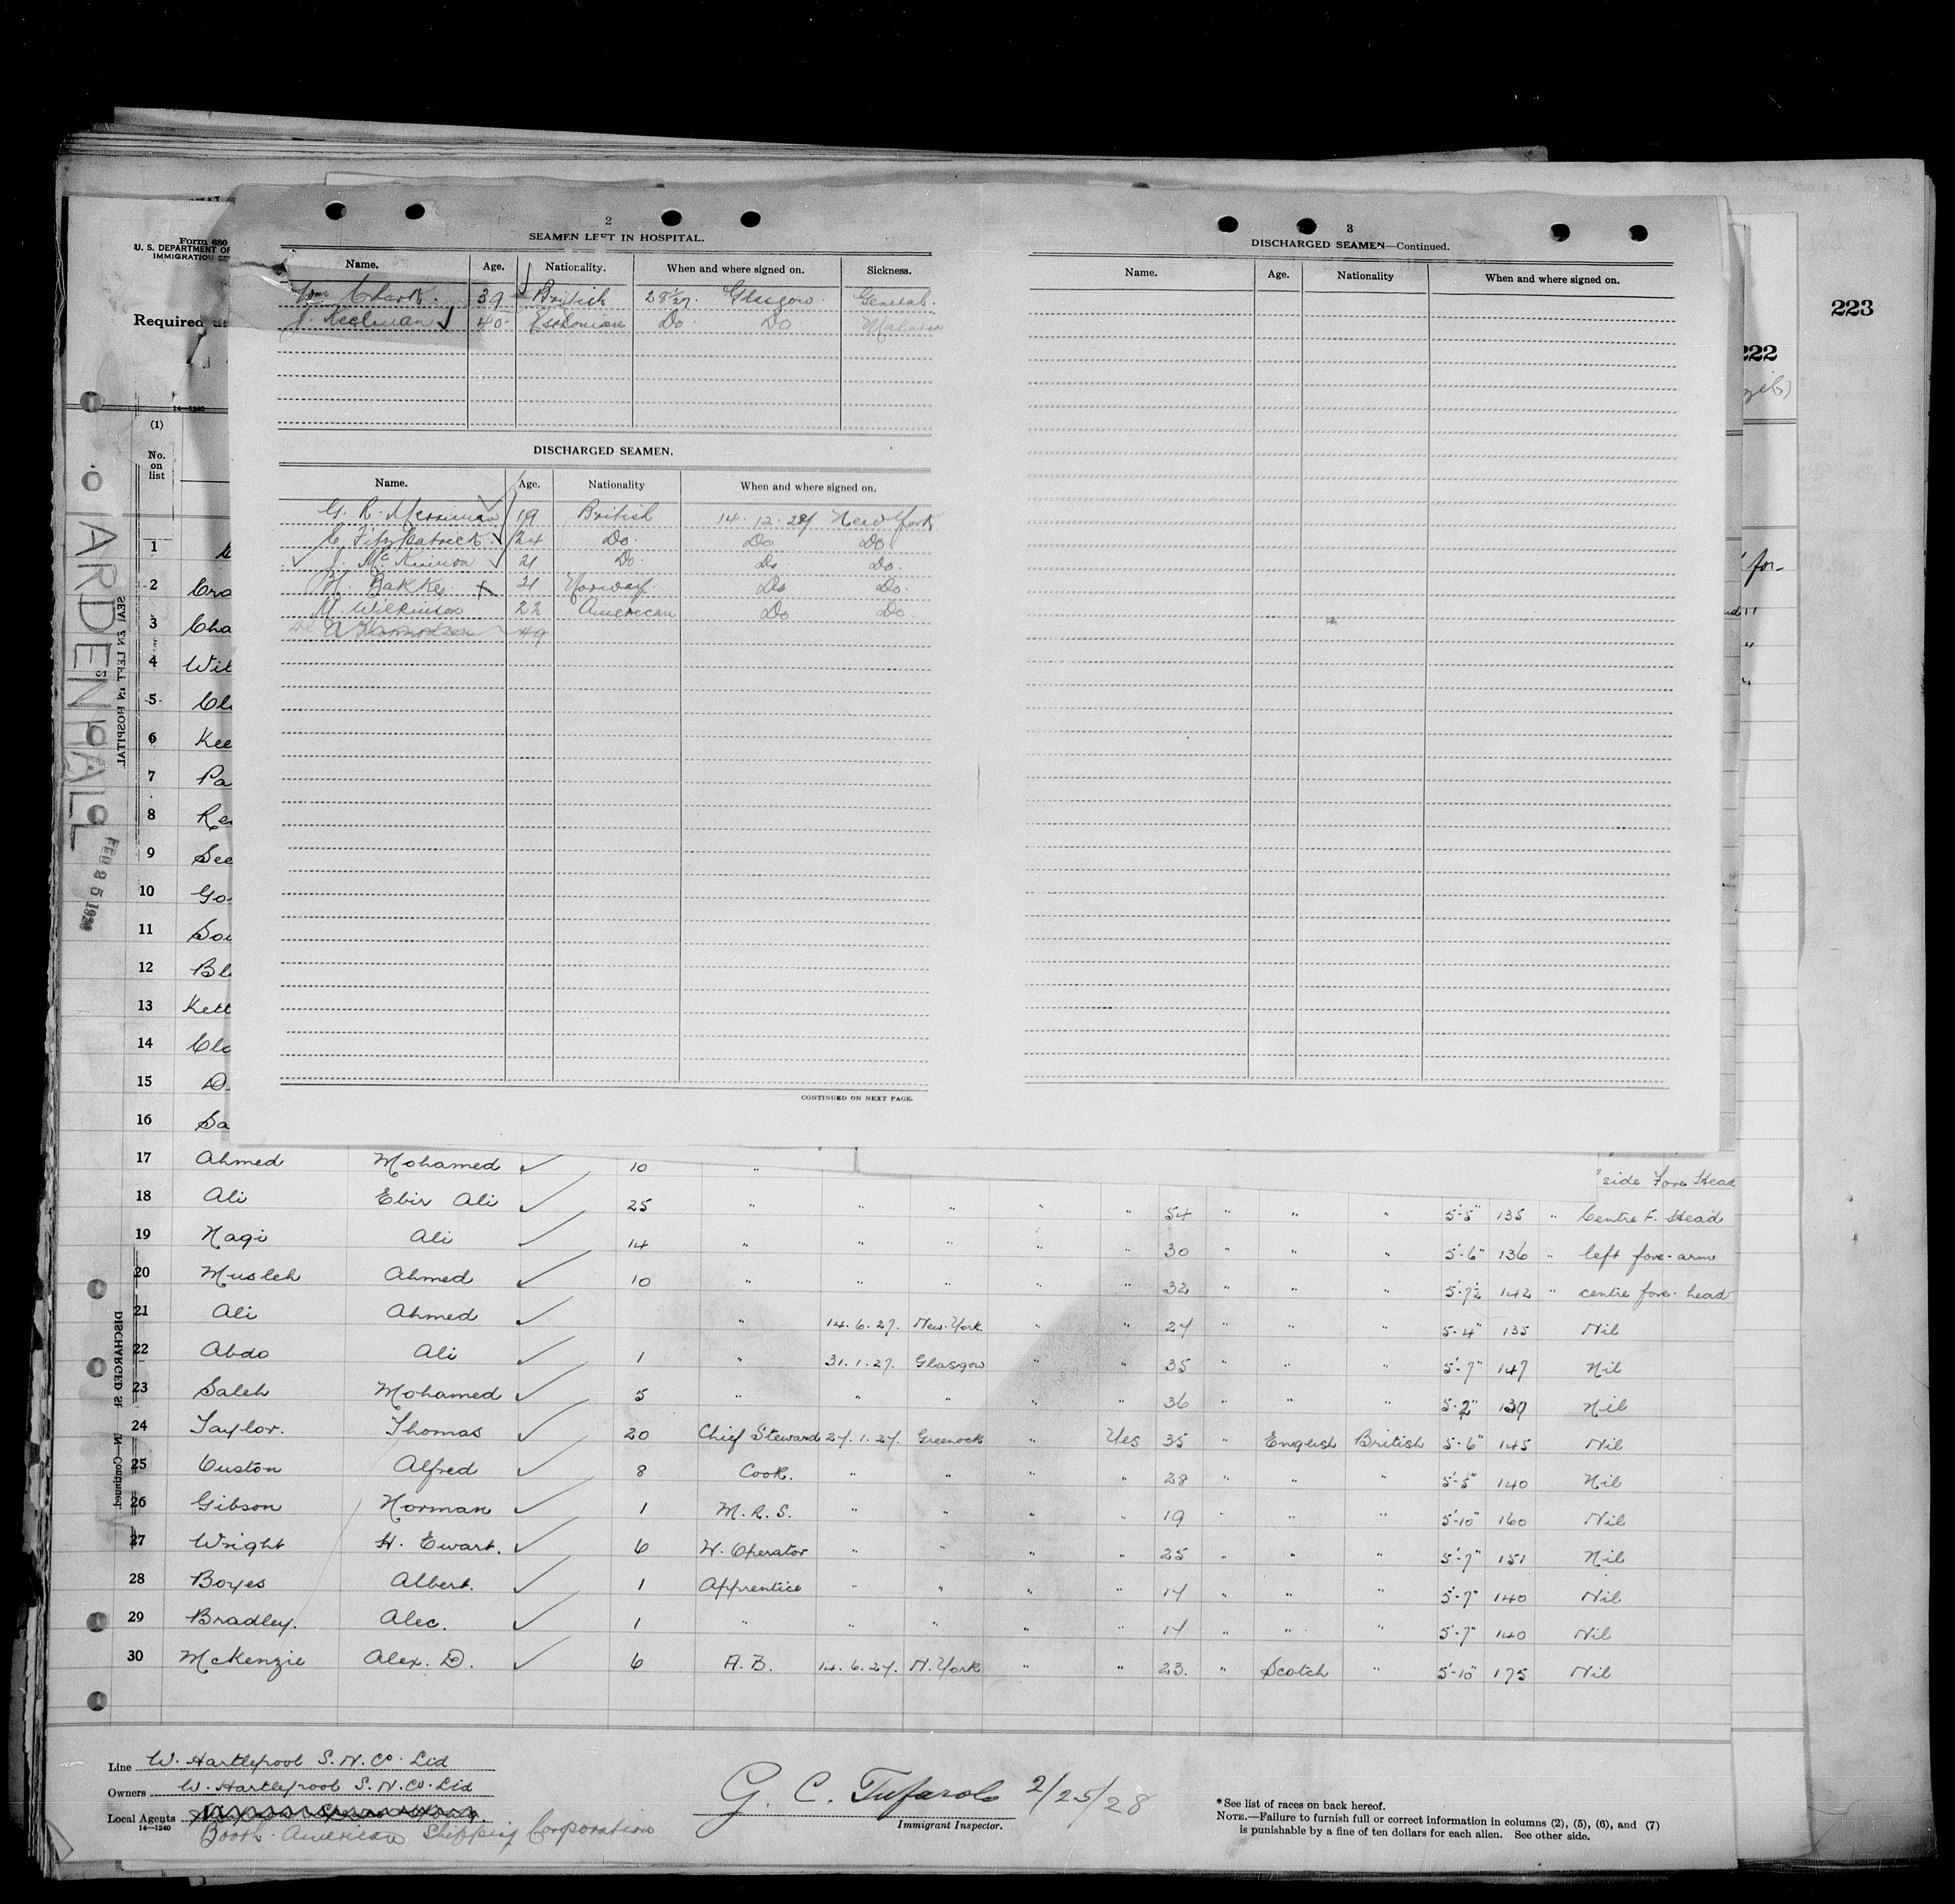 2
SEAMEN LEFT IN HOSPITAL.
Name. Age. Nationality. When and where signed on. Sickness.
Wm Clark. 39 British 28/1/27. Glasgow. General.
J. Keelman 40 Esthonian Do. Do Malaria
DISCHARGED SEAMEN.
Name. Age. Nationality When and where signed on.
G. R. Merriman 19 British 14.12.27 New York
C. Fitzpatrick 24 Do. Do Do
J. McKinnon 21 Do Do. Do.
M. Bakke 21 Norway. Do Do.
M. Wilkinson 22 American Do Do
49
CONTINUED ON NEXT PAGE.
3
DISCHARGED SEAMEN—Continued.
Name. Age. Nationality When and where signed on.
223
222
Form 680
U. S. DEPARTMENT OF
IMMIGRATION
Required
14—1240
(1)
No.
on
list
ARDENHALL
FEB 25 1928
SEAMEN LEFT IN HOSPITAL.
DISCHARGED
IN—Continued.
for-
1
2 Cra
3 Cha
4 Wil
5 Cl
6 Kee
7 Pa
8 Re
9 See
10 Go
11 Sou
12 Bl
13 Kett
14 Cla
15 D
16 Sa
17 Ahmed Mohamed ✓ 10 " side Fore Head
18 Ali Ebir Ali ✓ 25 " " " " " 54 " " " 5'-5" 135 " Centre F. Head
19 Nagi Ali ✓ 14 " " " " " 30 " " " 5'-6" 136 " left fore-arm
20 Musleh Ahmed ✓ 10 " " " " " 32 " " " 5'-7½ 142 " centre fore-head
21 Ali Ahmed ✓ " 14.6.27. New.York. " " 27 " " " 5-4" 135 Nil
22 Abdo Ali ✓ 1 " 31.1.27. Glasgow " " 35 " " " 5'-7" 147 Nil
23 Saleh Mohamed ✓ 5 " " " " " 36 " " " 5'-2" 139 Nil
24 Taylor. Thomas ✓ 20 Chief Steward 27.1.27. Greenock " Yes 35 " English British 5'-6" 145 Nil
25 Custon Alfred ✓ 8 Cook. " " " " 28 " " " 5'-5" 140 Nil
26 Gibson Norman ✓ 1 M.R.S. " " " " 19 " " " 5'-10" 160 Nil
27 Wright H. Ewart. ✓ 6 W. Operator " " " " 25 " " " 5'-7" 151 Nil
28 Boyes Albert. ✓ 1 Apprentice " " " " 17 " " " 5'-7" 140 Nil
29 Bradley. Alec. ✓ 1 " " " " " 17 " " " 5'-7" 140 Nil
30 McKenzie Alex. D. ✓ 6 A.B. 14.6.27. N. York " " 23. " Scotch " 5'-10" 175 Nil
Line W. Hartlepool S.N.Co. Ltd
Owners W. Hartlepool S.N.Co. Ltd
Local Agents
14—1240
Booth American Shipping Corporation
G. C. Tufarolo 2/25/28
Immigrant Inspector.
*See list of races on back hereof.
NOTE.—Failure to furnish full or correct information in columns (2), (5), (6), and (7)
is punishable by a fine of ten dollars for each alien. See other side.